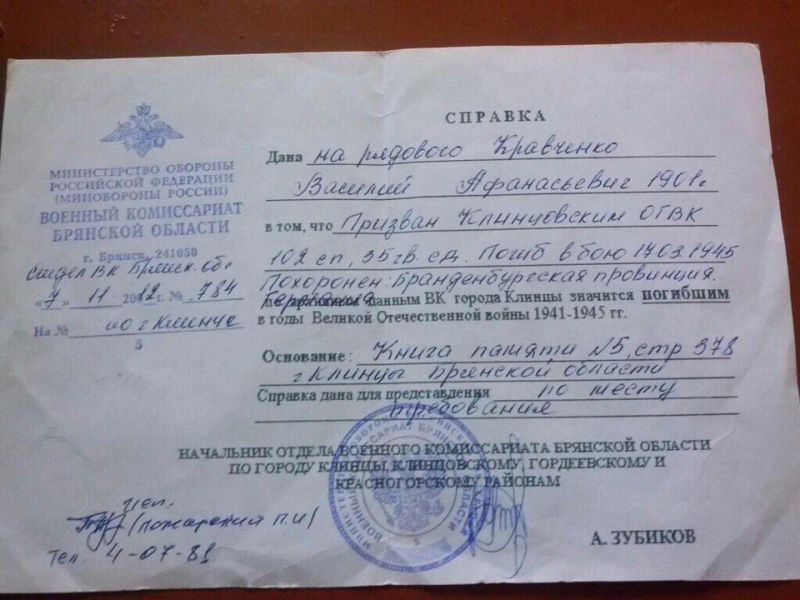 МИНИСТЕРСТВО ОБОРОНЫ
РОССИЙСКОЙ ФЕДЕРАЦИИ
(МИНОБОРОНЫ РОССИИ)
ВОЕННЫЙ КОМИССАРИАТ
БРЯНСКОЙ ОБЛАСТИ
г. Брянск, 241050
отдел ВК Брянск. обл
«7» 11 2012 г. № 784
На № по г Клинцы
5
СПРАВКА
Дана на рядового Кравченко
Василий Афанасьевич 1901г.
в том, что Призван Клинцовским ОГВК
102 сп, 35 гв. сд. Погиб в бою 17.03.1945
Похоронен: Бранденбургская провинция.
Германия
по данным ВК города Клинцы значится погибшим
в годы Великой Отечественной войны 1941-1945 гг.
Основание: Книга памяти №5, стр 378
г Клинцы Брянской области
Справка дана для представления по месту
требования
НАЧАЛЬНИК ОТДЕЛА ВОЕННОГО КОМИССАРИАТА БРЯНСКОЙ ОБЛАСТИ
ПО ГОРОДУ КЛИНЦЫ, КЛИНЦОВСКОМУ, ГОРДЕЕВСКОМУ И
КРАСНОГОРСКОМУ РАЙОНАМ
А. ЗУБИКОВ
исп.
(Пожарский П.И)
Тел. 4-07-81